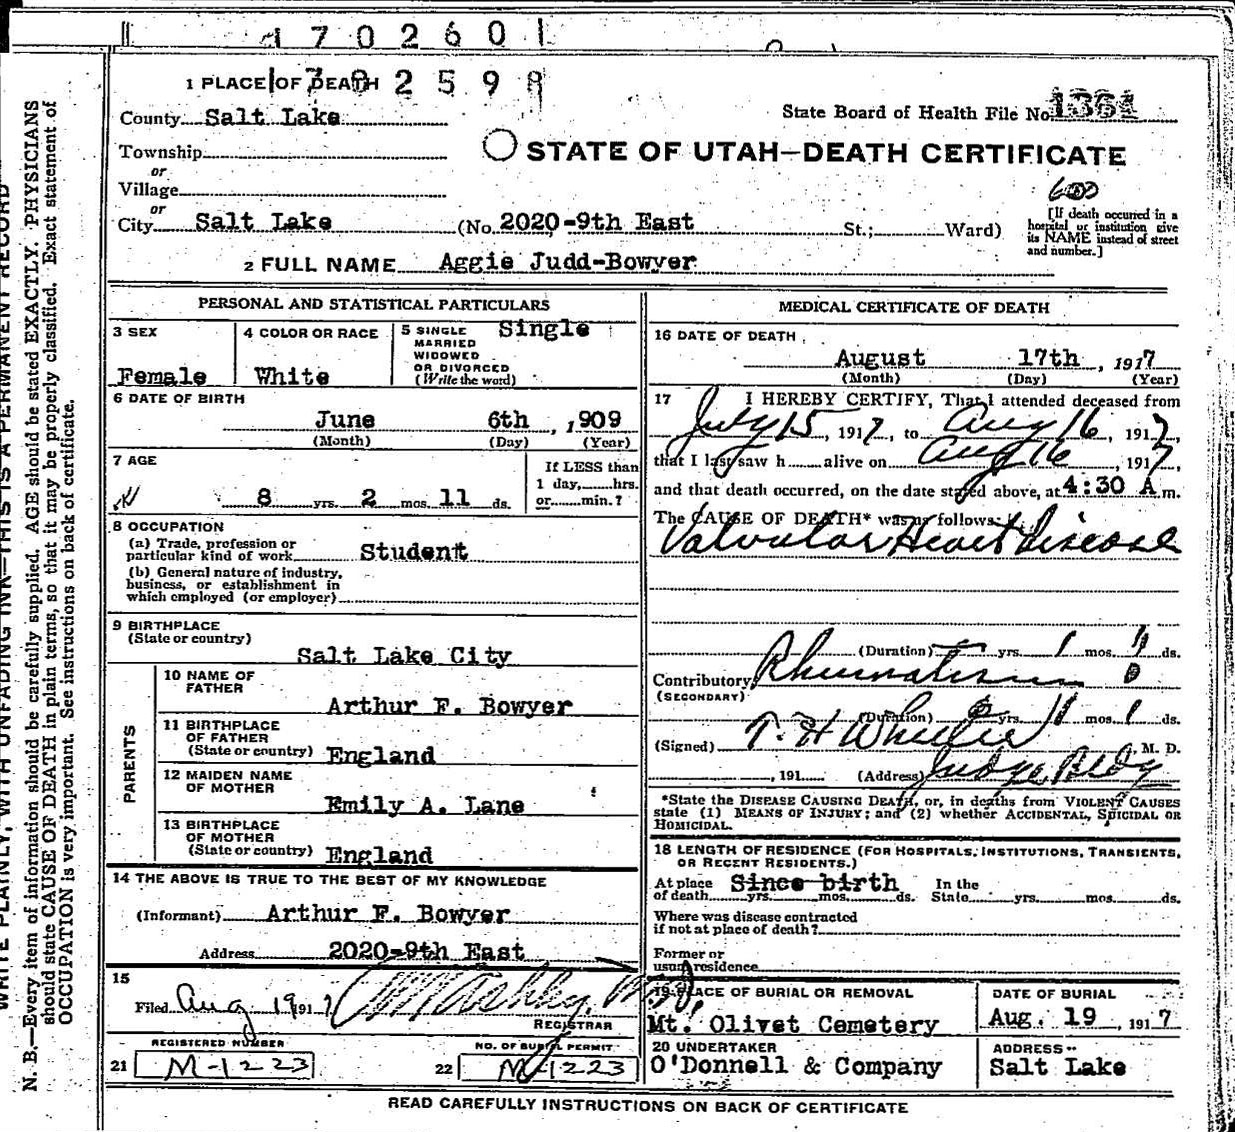 170260
1 PLACE OF DEATH 2598
County Salt Lake
State Board of Health File No. 1361
Township
STATE OF UTAH—DEATH CERTIFICATE
or
Village
or
City Salt Lake (No. 2020-9th East St.; Ward)
[If death occurred in a
hospital or institution give
its NAME instead of street
and number.]
2 FULL NAME Aggie Judd-Bowyer
PERSONAL AND STATISTICAL PARTICULARS
3 SEX
Female
4 COLOR OR RACE
White
5 SINGLE Single
MARRIED
WIDOWED
OR DIVORCED
(Write the word)
6 DATE OF BIRTH
June 6th, 1909
(Month) (Day) (Year)
7 AGE
8 yrs. 2 mos. 11 ds.
If LESS than
1 day, hrs.
or min.?
8 OCCUPATION
(a) Trade, profession or
particular kind of work Student
(b) General nature of industry,
business, or establishment in
which employed (or employer)
9 BIRTHPLACE
(State or country)
Salt Lake City
PARENTS
10 NAME OF
FATHER
Arthur F. Bowyer
11 BIRTHPLACE
OF FATHER
(State or country) England
12 MAIDEN NAME
OF MOTHER
Emily A. Lane
13 BIRTHPLACE
OF MOTHER
(State or country) England
14 THE ABOVE IS TRUE TO THE BEST OF MY KNOWLEDGE
(Informant) Arthur F. Bowyer
Address 2020-9th East
15
Filed Aug 19 1917 M Ashby, M.D.
REGISTRAR
REGISTERED NUMBER
21 M-1223
NO. OF BURIAL PERMIT
22 M-1223
MEDICAL CERTIFICATE OF DEATH
16 DATE OF DEATH
August 17th, 1917
(Month) (Day) (Year)
17 I HEREBY CERTIFY, That I attended deceased from
July 15, 1917, to Aug 16, 1917,
that I last saw h alive on Aug 16, 1917,
and that death occurred, on the date stated above, at 4:30 A m.
The CAUSE OF DEATH* was as follows:
Valvular Heart disease
(Duration) yrs. 1 mos. ds.
Contributory Rheumatism
(SECONDARY)
(Duration) yrs. mos. ds.
(Signed) T. H Wheeler, M. D.
, 191 (Address) Judge Bldg
*State the DISEASE CAUSING DEATH, or, in deaths from VIOLENT CAUSES
state (1) MEANS OF INJURY; and (2) whether ACCIDENTAL, SUICIDAL OR
HOMICIDAL.
18 LENGTH OF RESIDENCE (FOR HOSPITALS, INSTITUTIONS, TRANSIENTS,
OR RECENT RESIDENTS.)
At place Since birth In the
of death yrs. mos. ds. State yrs. mos. ds.
Where was disease contracted
if not at place of death?
Former or
usual residence
19 PLACE OF BURIAL OR REMOVAL
Mt. Olivet Cemetery
DATE OF BURIAL
Aug. 19, 1917
20 UNDERTAKER
O'Donnell & Company
ADDRESS
Salt Lake
READ CAREFULLY INSTRUCTIONS ON BACK OF CERTIFICATE
WRITE PLAINLY, WITH UNFADING INK—THIS IS A PERMANENT RECORD
N. B.—Every item of information should be carefully supplied. AGE should be stated EXACTLY. PHYSICIANS
should state CAUSE OF DEATH in plain terms, so that it may be properly classified. Exact statement of
OCCUPATION is very important. See instructions on back of certificate.